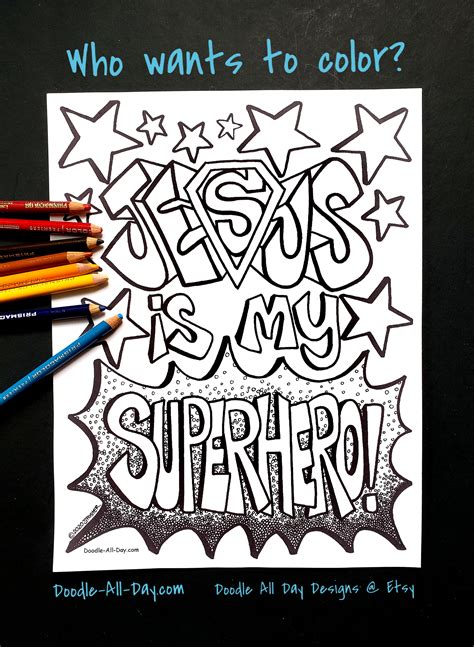 Who wants to color?
JESUS
is my
SUPERHERO!
©2020 
Doodle-All-Day.com
PRISMAC
Doodle-All-Day.com Doodle All Day Designs @ Etsy